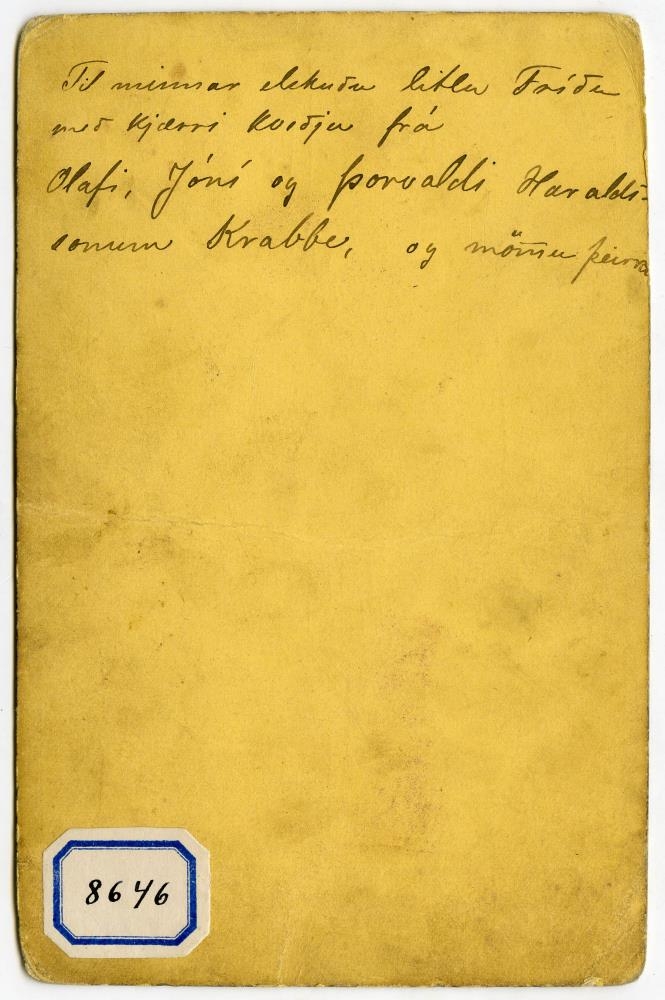 Til minnar elskuðu litlu Fríðu
með kjærri kveðju frá
Olafi, Jóni og Þorvaldi Haralds-
sonum Krabbe, og mömmu þeirra
8646